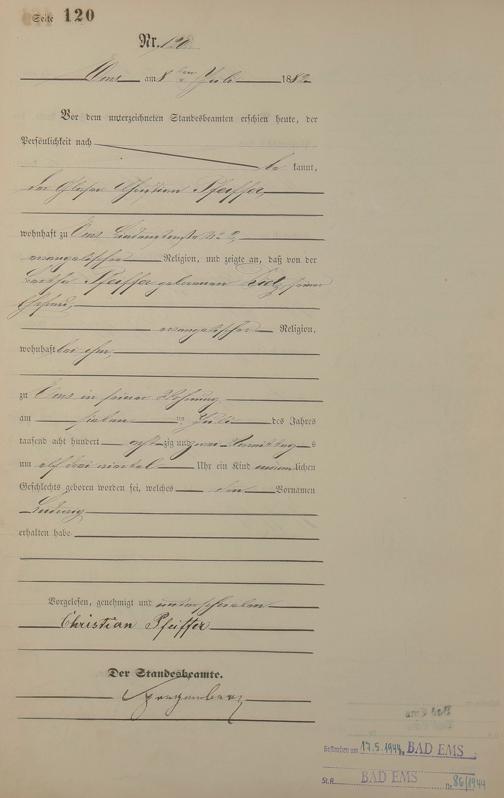 Seite 120
Nr. 120
Ems am 8ten Juli 1882
Vor dem unterzeichneten Standesbeamten erschien heute, der
Persönlichkeit nach
be kannt,
der Glaser Christian Pfeiffer,
wohnhaft zu Ems
evangelischer Religion, und zeigte an, daß von der
Pfeiffer geborenen seiner
Ehefrau,
evangelischer Religion,
wohnhaft bei ihm,
zu Ems in seiner Wohnung
am sieben ten Juli des Jahres
tausend acht hundert acht zig und zwei Vormittag s
um elf drei viertel Uhr ein Kind männ lichen
Geschlechts geboren worden sei, welches den Vornamen
Ludwig
erhalten habe
Vorgelesen, genehmigt und unterschrieben
Christian Pfeiffer
Der Standesbeamte.
Gestorben am 17.5.1944, BAD EMS
St.A. BAD EMS Nr. 86/1944